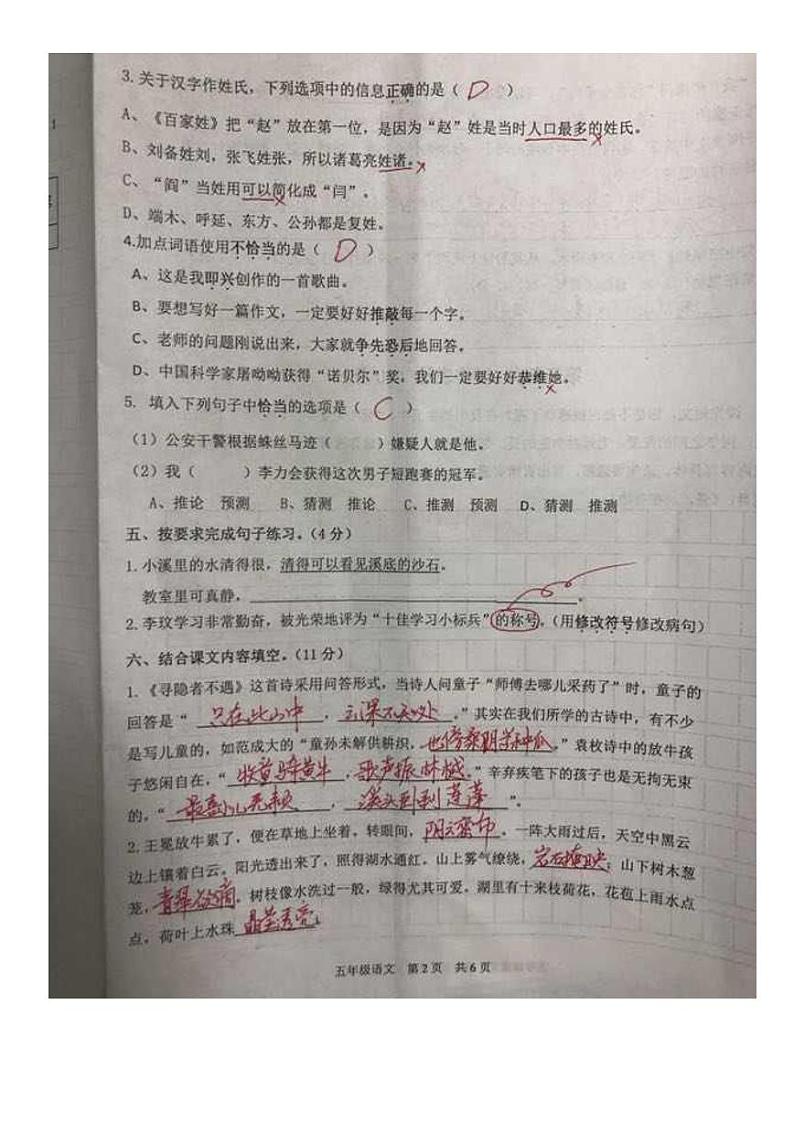 3. 关于汉字作姓氏，下列选项中的信息正确的是（ D ）
A、《百家姓》把“赵”放在第一位，是因为“赵”姓是当时人口最多的姓氏。
B、刘备姓刘，张飞姓张，所以诸葛亮姓诸。
C、“阎”当姓用可以简化成“闫”。
D、端木、呼延、东方、公孙都是复姓。
4.加点词语使用不恰当的是（ D ）
A、这是我即兴创作的一首歌曲。
B、要想写好一篇作文，一定要好好推敲每一个字。
C、老师的问题刚说出来，大家就争先恐后地回答。
D、中国科学家屠呦呦获得“诺贝尔”奖，我们一定要好好恭维她。
5. 填入下列句子中恰当的选项是（ C ）
（1）公安干警根据蛛丝马迹（ ）嫌疑人就是他。
（2）我（ ）李力会获得这次男子短跑赛的冠军。
A、推论 预测 B、猜测 推论 C、推测 预测 D、猜测 推测
五、按要求完成句子练习。（4分）
1.小溪里的水清得很，清得可以看见溪底的沙石。
教室里可真静，。
2.李玟学习非常勤奋，被光荣地评为“十佳学习小标兵”的称号。（用修改符号修改病句）
六、结合课文内容填空。（11分）
1.《寻隐者不遇》这首诗采用问答形式，当诗人问童子“师傅去哪儿采药了”时，童子的
回答是“只在此山中，云深不知处。”其实在我们所学的古诗中，有不少
是写儿童的，如范成大的“童孙未解供耕织，也傍桑阴学种瓜。”袁枚诗中的放牛孩
子悠闲自在，“牧童骑黄牛，歌声振林樾。”辛弃疾笔下的孩子也是无拘无束
的，“最喜小儿无赖，溪头卧剥莲蓬”。
2.王冕放牛累了，便在草地上坐着。转眼间，阴云密布。一阵大雨过后，天空中黑云
边上镶着白云。阳光透出来了，照得湖水通红。山上雾气缭绕，岩石掩映；山下树木葱
笼，青翠欲滴。树枝像水洗过一般，绿得尤其可爱。湖里有十来枝荷花，花苞上雨水点
点，荷叶上水珠晶莹透亮。
五年级语文 第2页 共6页